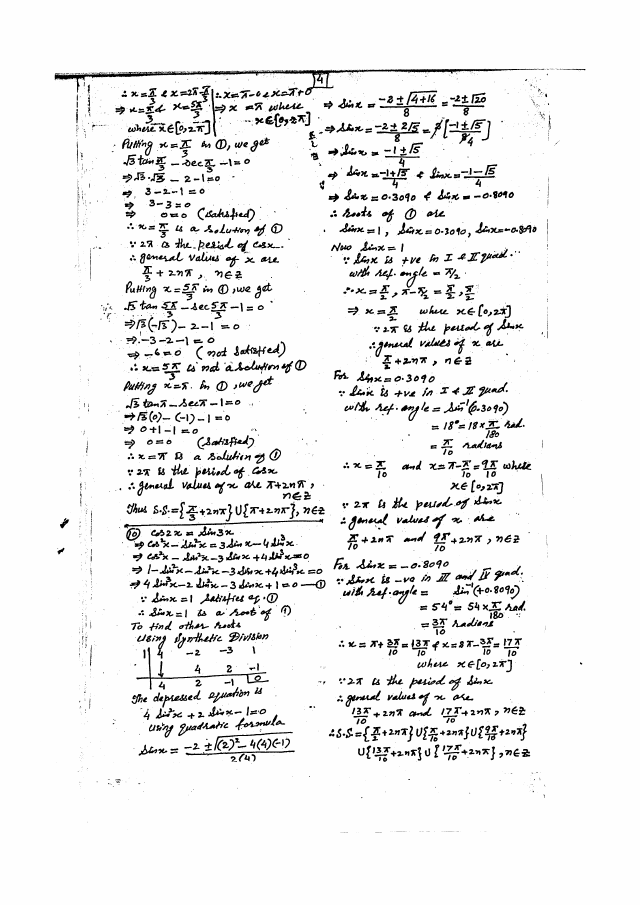 4
∴ x = π/3 & x = 2π - π/3 | ∴ x = π - 0 & x = π + 0
⇒ x = π/3 & x = 5π/3 | ⇒ x = π where
where x ∈ [0, 2π] | x ∈ [0, 2π]
Putting x = π/3 in ①, we get
√3 tan π/3 - sec π/3 - 1 = 0
⇒ √3·√3 - 2 - 1 = 0
⇒ 3 - 2 - 1 = 0
⇒ 3 - 3 = 0
⇒ 0 = 0 (Satisfied)
∴ x = π/3 is a solution of ①
∵ 2π is the period of cosx
∴ general values of x are
π/3 + 2nπ, n∈Z
Putting x = 5π/3 in ①, we get
√3 tan 5π/3 - sec 5π/3 - 1 = 0
⇒ √3(-√3) - 2 - 1 = 0
⇒ -3 - 2 - 1 = 0
⇒ -6 = 0 (not Satisfied)
∴ x = 5π/3 is not a solution of ①
Putting x = π in ①, we get
√3 tanπ - secπ - 1 = 0
⇒ √3(0) - (-1) - 1 = 0
⇒ 0 + 1 - 1 = 0
⇒ 0 = 0 (Satisfied)
∴ x = π is a solution of ①
∵ 2π is the period of cosx
∴ general values of x are π + 2nπ,
n∈Z
Thus S.S = {π/3 + 2nπ} ∪ {π + 2nπ}, n∈Z
⑩ cos2x = Sin3x
⇒ cos²x - Sin²x = 3Sinx - 4Sin³x
⇒ cos²x - Sin²x - 3Sinx + 4Sin³x = 0
⇒ 1 - Sin²x - Sin²x - 3Sinx + 4Sin³x = 0
⇒ 4Sin³x - 2Sin²x - 3Sinx + 1 = 0 — ①
∵ Sinx = 1 Satisfies eq. ①
∴ Sinx = 1 is a root of ①
To find other roots
Using Synthetic Division
1 | 4 -2 -3 1
4 2 -1
4 2 -1 0
The depressed equation is
4Sin²x + 2Sinx - 1 = 0
Using quadratic formula
Sinx = (-2 ± √((2)² - 4(4)(-1)))/2(4)
⇒ Sinx = (-2 ± √(4+16))/8 = (-2 ± √20)/8
⇒ Sinx = (-2 ± 2√5)/8 = 2[(-1 ± √5)/8 4]
⇒ Sinx = (-1 ± √5)/4
⇒ Sinx = (-1 + √5)/4 & Sinx = (-1 - √5)/4
⇒ Sinx = 0.3090 & Sinx = -0.8090
∴ Roots of ① are
Sinx = 1, Sinx = 0.3090, Sinx = -0.8090
Now Sinx = 1
∵ Sinx is +ve in I & II quad.
with ref. angle = π/2
∴ x = π/2, π - π/2 = π/2, π/2
⇒ x = π/2 where x∈[0, 2π]
∵ 2π is the period of Sinx
∴ general values of x are
π/2 + 2nπ, n∈Z
For Sinx = 0.3090
∵ Sinx is +ve in I & II quad.
with ref. angle = Sin⁻¹(0.3090)
= 18° = 18 × π/180 rad.
= π/10 radians
∴ x = π/10 and x = π - π/10 = 9π/10 where
x∈[0, 2π]
∵ 2π is the period of Sinx
∴ general values of x are
π/10 + 2nπ and 9π/10 + 2nπ, n∈Z
For Sinx = -0.8090
∵ Sinx is -ve in III and IV quad.
with Ref. angle = Sin⁻¹(+0.8090)
= 54° = 54 × π/180 rad.
= 3π/10 radians
∴ x = π + 3π/10 = 13π/10 & x = 2π - 3π/10 = 17π/10
where x∈[0, 2π]
∵ 2π is the period of Sinx
∴ general values of x are
13π/10 + 2nπ and 17π/10 + 2nπ, n∈Z
∴ S.S = {π/2 + 2nπ} ∪ {π/10 + 2nπ} ∪ {9π/10 + 2nπ}
∪ {13π/10 + 2nπ} ∪ {17π/10 + 2nπ}, n∈Z